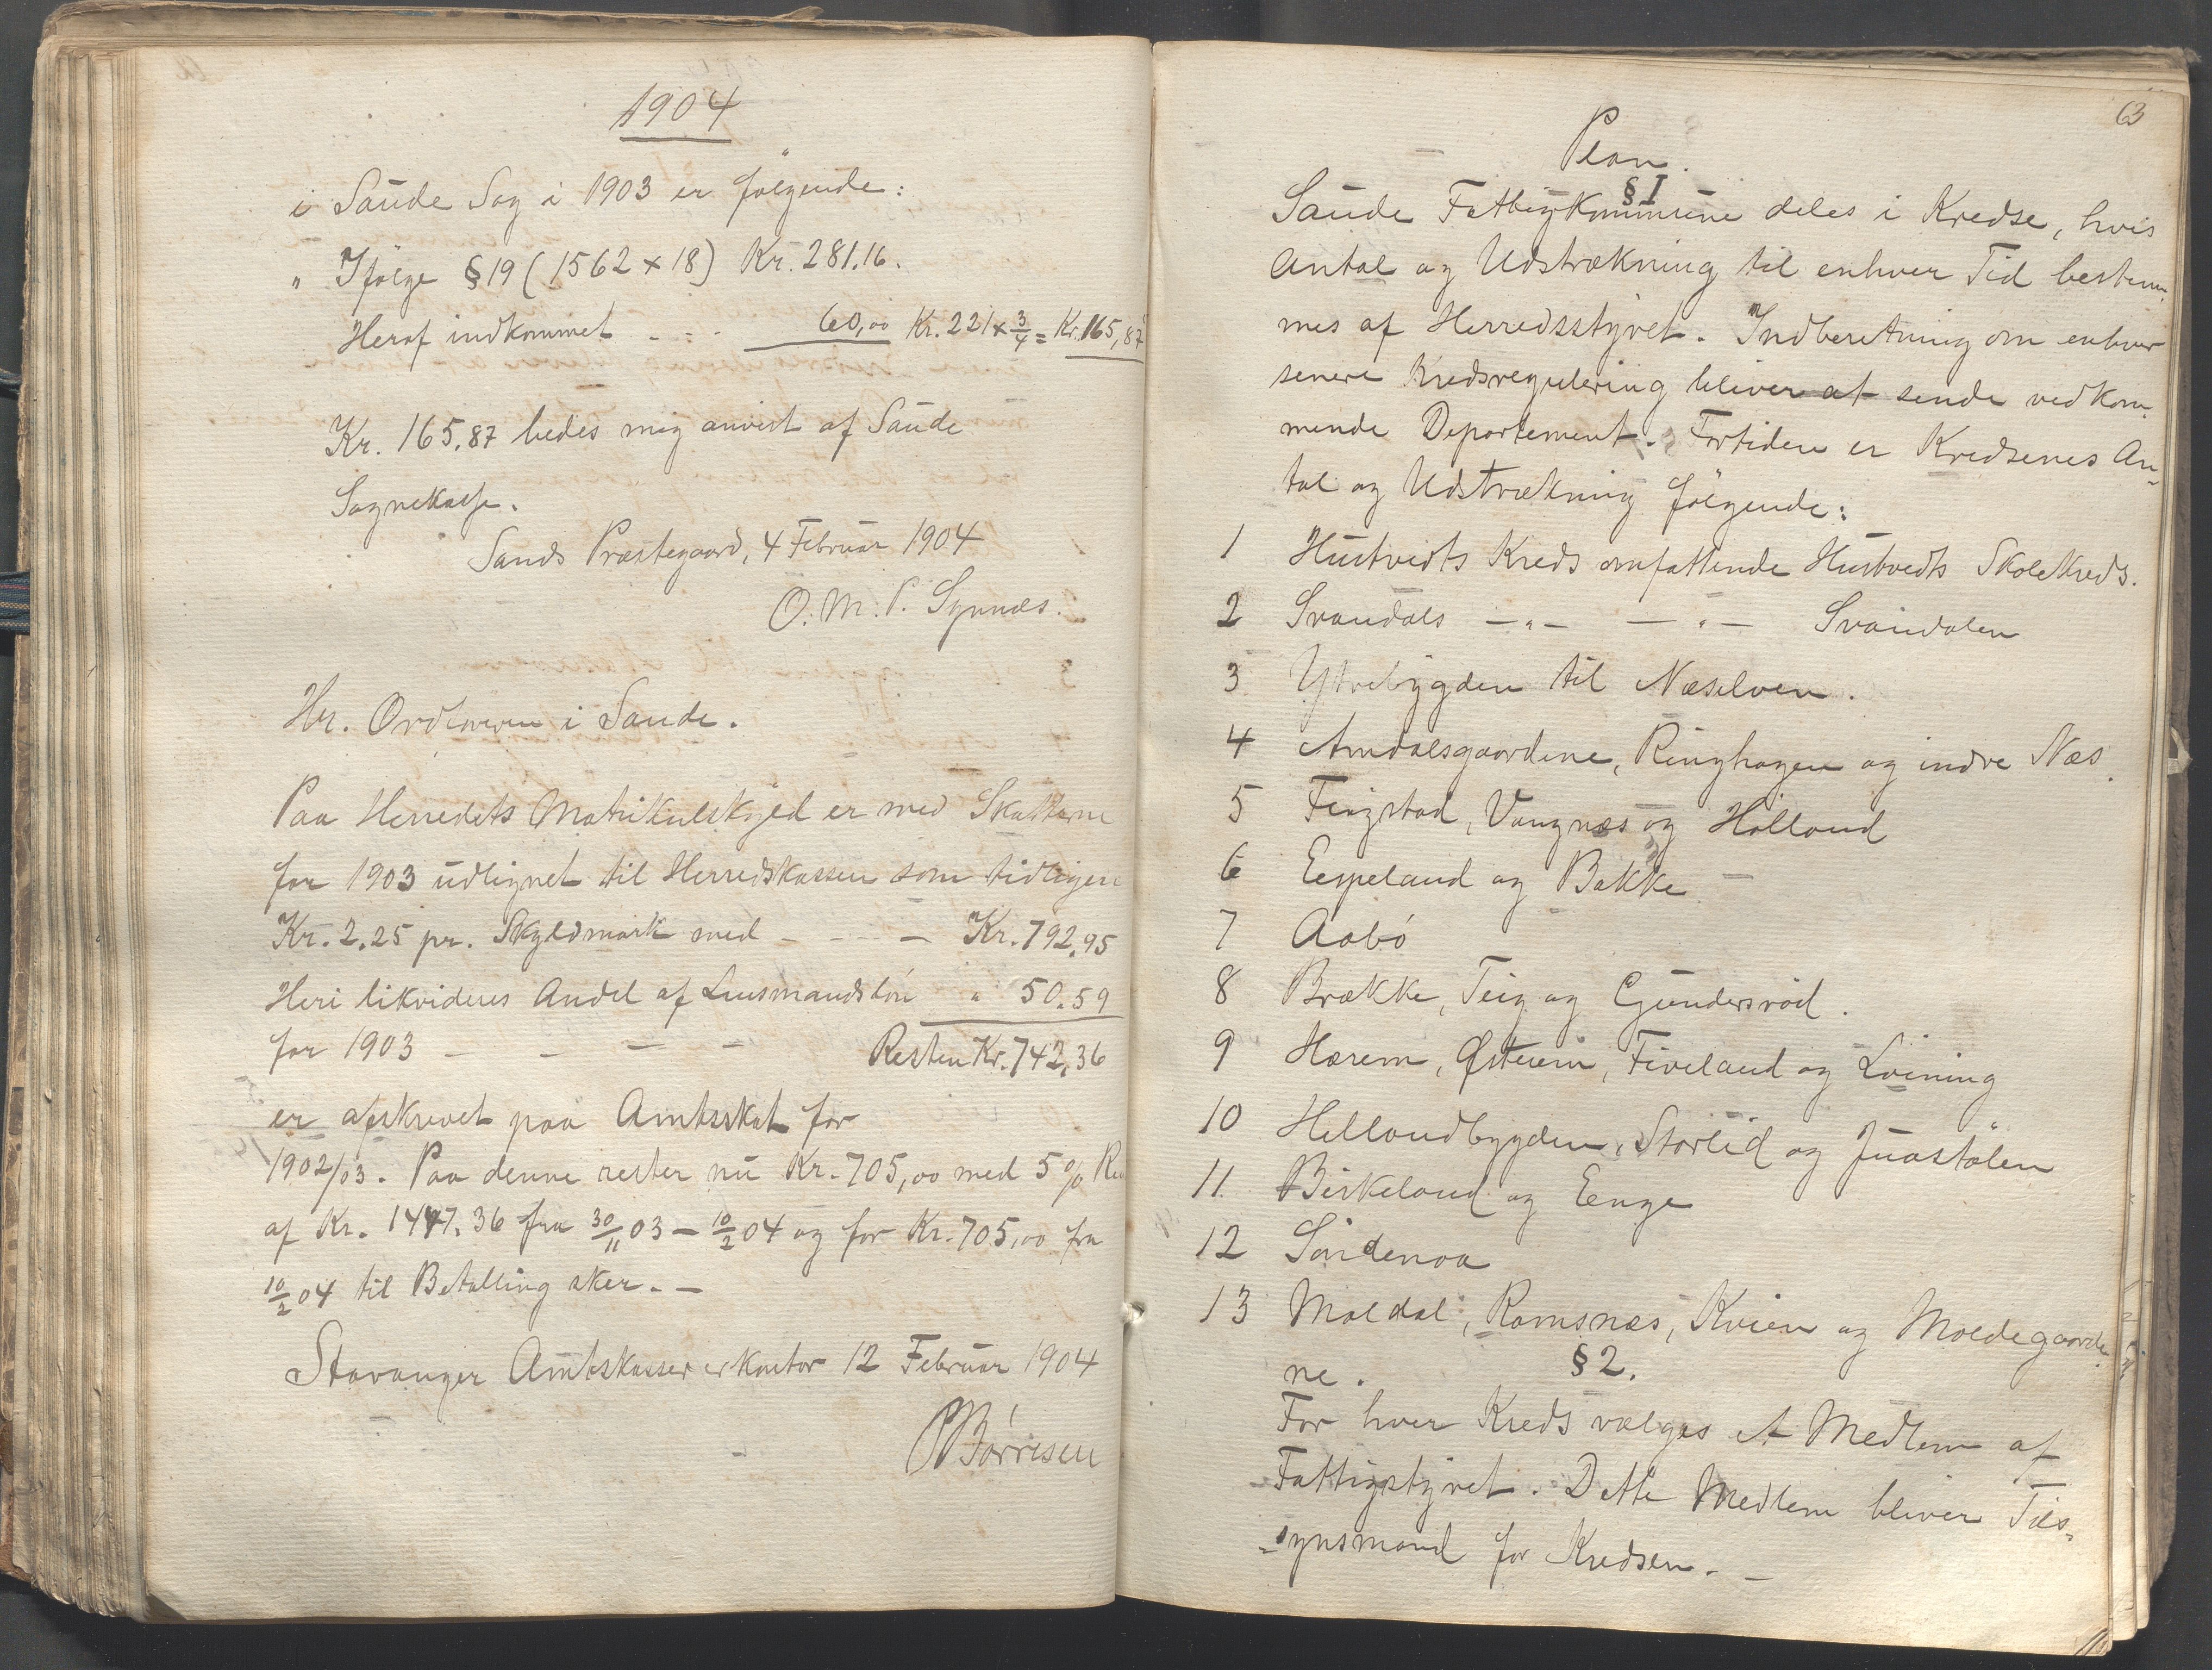 1904
i Saude Sog i 1903 er følgende:
" Ifølge § 19 (1562 x 18) Kr. 281.16.
Heraf indkommet - - - 60,00 Kr. 221 x 3/4 = Kr. 165,87
Kr. 165,87 bedes mig anvist af Saude
Sognekasse.
Sands Præstegaard, 4 Februar 1904
O. M. P. Synnes.
Hr. Ordføreren i Saude.
Paa Herredets Matrikulskyld er med Skatterne
for 1903 udlignet til Herredskassen som tidligere
Kr. 2,25 pr. Skyldmark med - - - Kr. 792,95
Heri likvideres Andel af Lensmandsløn " 50.59
for 1903 - - - - Resten Kr. 742,36
er afskrevet paa Amtsskat for
1902/03. Paa denne rester nu Kr. 705,00 med 5 %
af Kr. 1447.36 fra 30/11 03 - 10/2 04 og for Kr. 705,00 fra
10/2 04 til Betalling sker. -
Stavanger Amtskassererkontor 12 Februar 1904
Børresen
63
Plan.
§ I
Saude Fattigkommune deles i Kredse, hvis
Antal og Udstrækning til enhver Tid bestem-
mes af Herredsstyret. Indberetning om enhver
senere Kredsregulering bliver at sende vedkom-
mende Departement. Fortiden er Kredsenes An-
tal og Udstrækning følgende:
1 Hustvedts Kreds omfattende Hustvedts Skolekreds.
2 Svandals -"- -"- Svandalen
3 Ytrebygden til Næselven.
4 Amdalsgaardene, Ringhagen og indre Næs.
5 Fiigstad, Vangnæs og Hølland
6 Espeland og Bakke
7 Aabø
8 Brække, Teig og Gundersrød.
9 Hærem, Østerein, Fiveland og Løining
10 Hellandbygden, Storlid og Juastølen
11. Birkeland og Enge
12 Søndenaa
13 Maldal, Ramsnæs, Kvien og Moldegaarde-
ne.
§ 2.
For hver Kreds vælges et Medlem af
Fattigstyret. Dette Medlem bliver Til-
synsmand for Kredsen. -